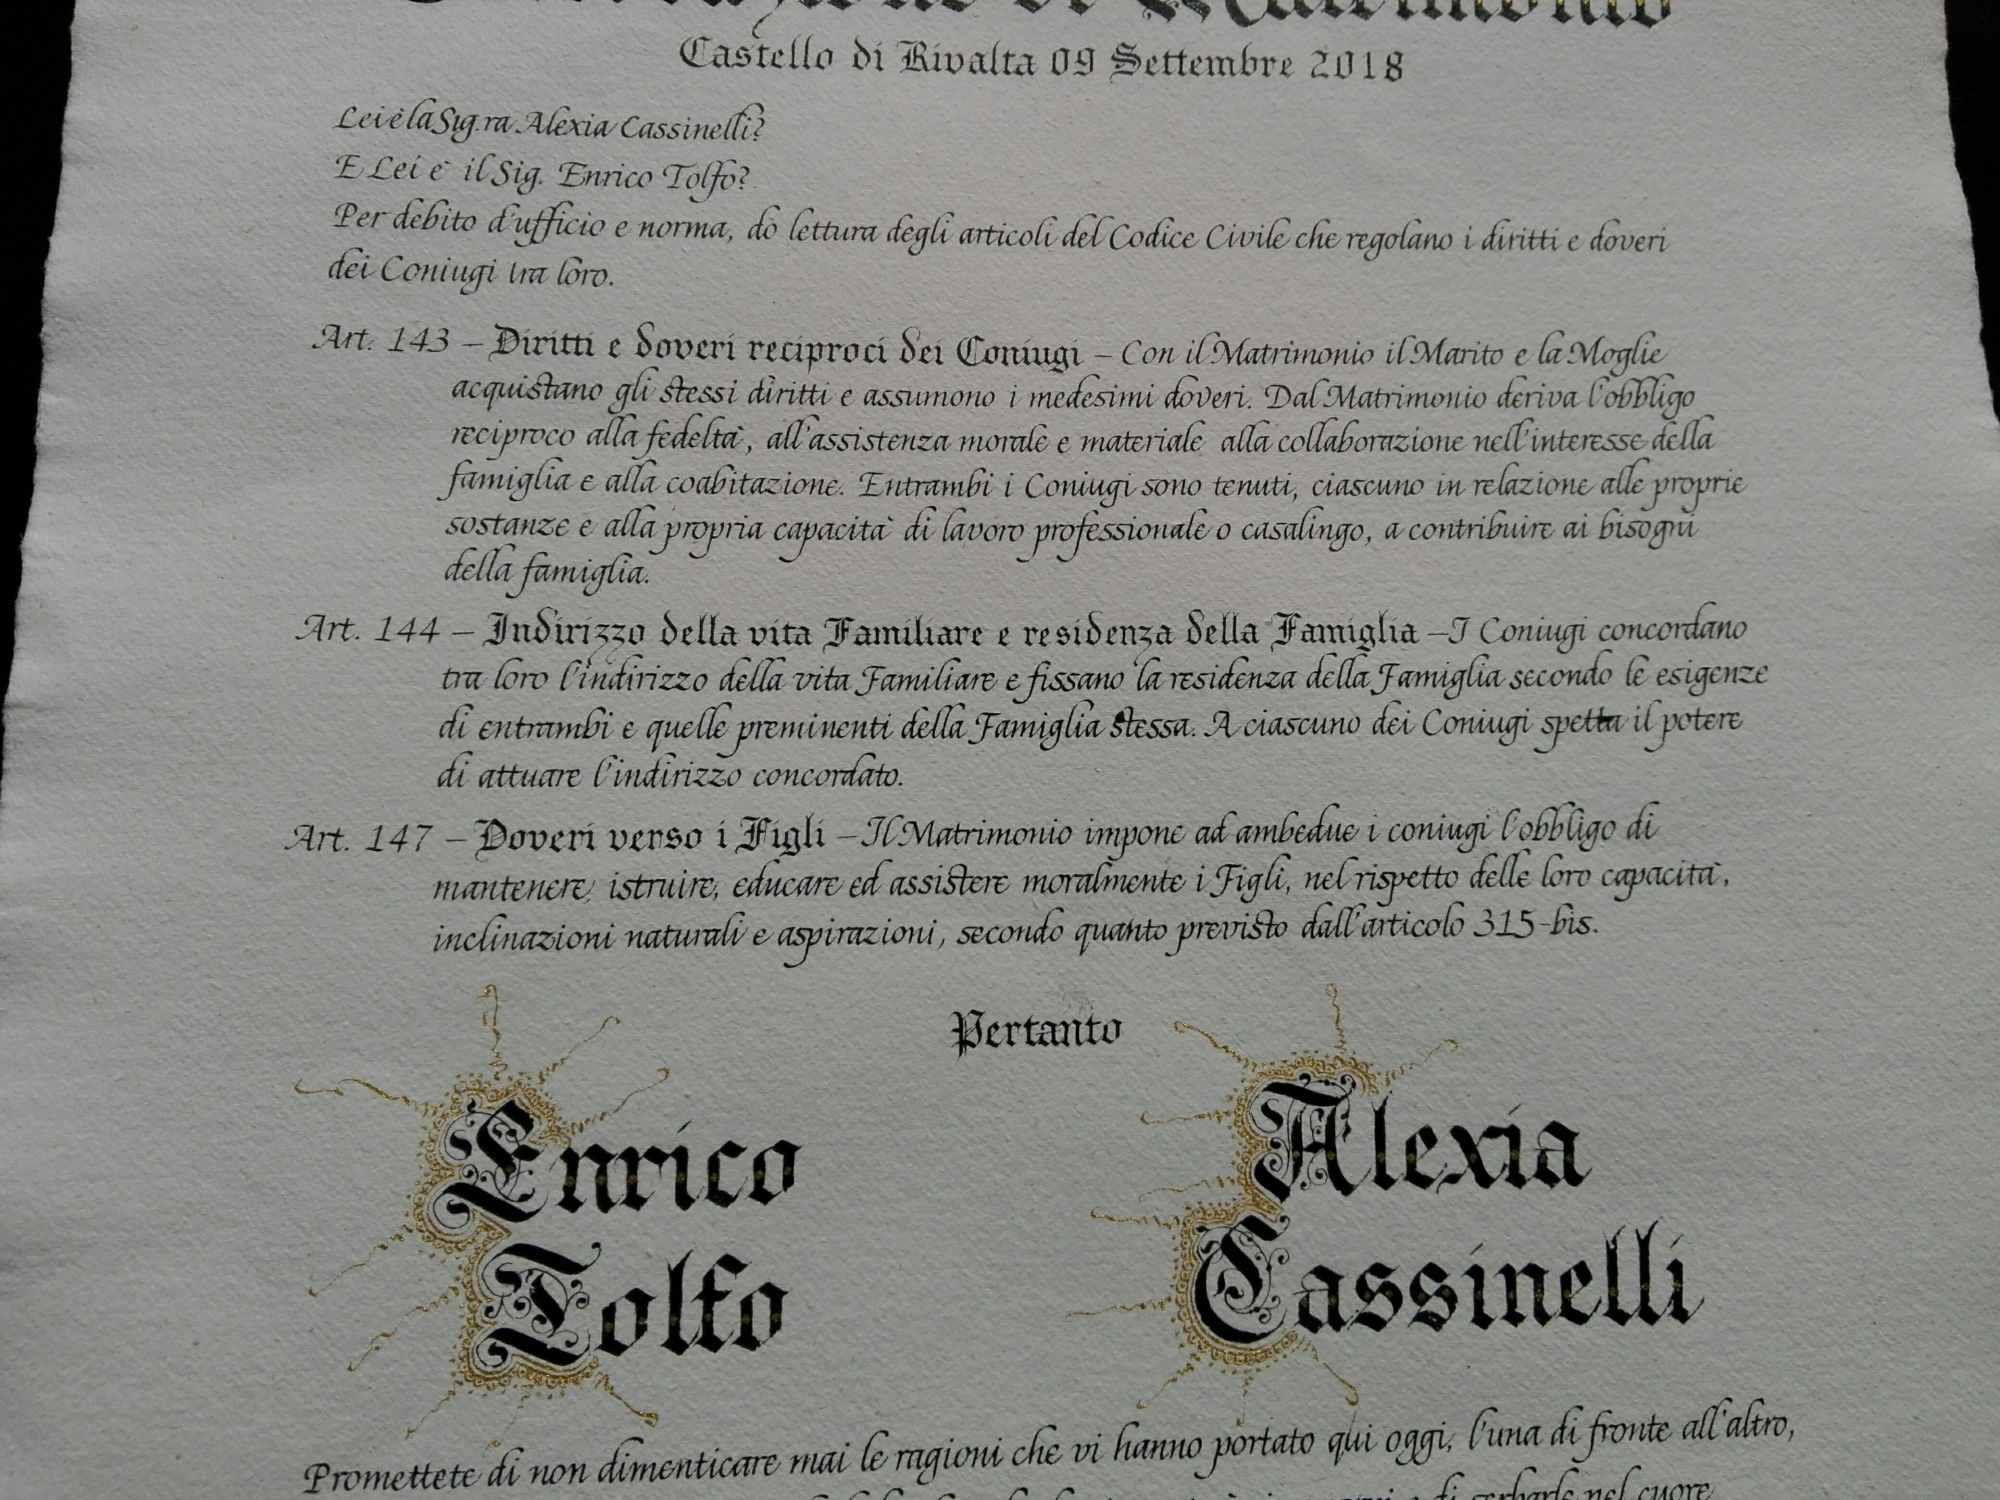 di Matrimonio
Castello di Rivalta 09 Settembre 2018
Lei è la Sig.ra Alexia Cassinelli?
E Lei è il Sig. Enrico Tolfo?
Per debito d'ufficio e norma, dò lettura degli articoli del Codice Civile che regolano i diritti e doveri
dei Coniugi tra loro.
Art. 143 – Diritti e doveri reciproci dei Coniugi – Con il Matrimonio il Marito e la Moglie
acquistano gli stessi diritti e assumono i medesimi doveri. Dal Matrimonio deriva l'obbligo
reciproco alla fedeltà, all'assistenza morale e materiale alla collaborazione nell'interesse della
famiglia e alla coabitazione. Entrambi i Coniugi sono tenuti, ciascuno in relazione alle proprie
sostanze e alla propria capacità di lavoro professionale o casalingo, a contribuire ai bisogni
della famiglia.
Art. 144 – Indirizzo della vita Familiare e residenza della Famiglia – I Coniugi concordano
tra loro l'indirizzo della vita Familiare e fissano la residenza della Famiglia secondo le esigenze
di entrambi e quelle preminenti della Famiglia stessa. A ciascuno dei Coniugi spetta il potere
di attuare l'indirizzo concordato.
Art. 147 – Doveri verso i Figli – Il Matrimonio impone ad ambedue i coniugi l'obbligo di
mantenere, istruire, educare ed assistere moralmente i Figli, nel rispetto delle loro capacità,
inclinazioni naturali e aspirazioni, secondo quanto previsto dall'articolo 315-bis.
Pertanto
Enrico
Tolfo
Alexia
Cassinelli
Promettete di non dimenticare mai le ragioni che vi hanno portato qui oggi, l'una di fronte all'altro,
di serbarle nel cuore